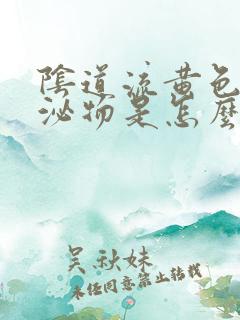 陰道流黄色
泌物是怎麼
吴秋妹
未经同意禁止转载